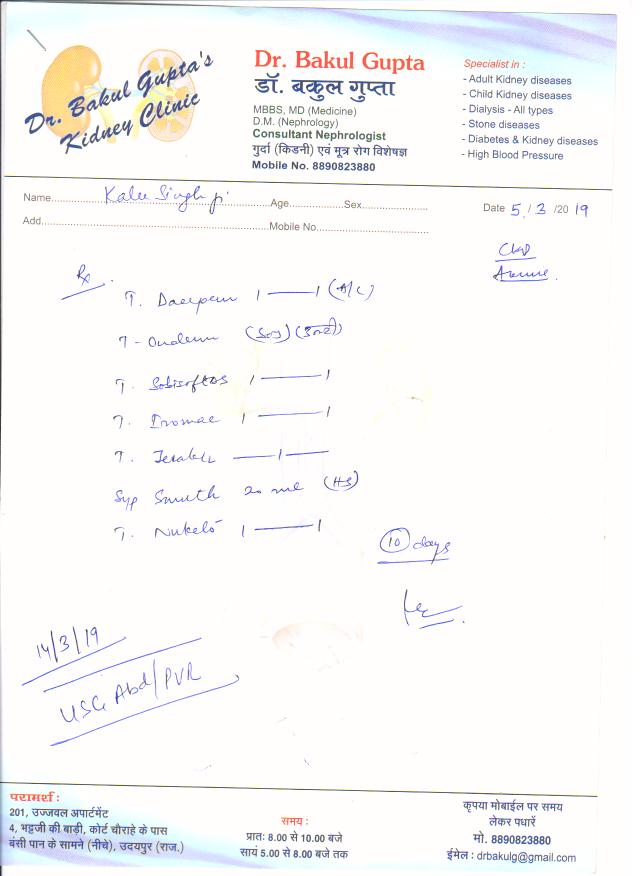 Dr. Bakul Gupta's
Kidney Clinic
Dr. Bakul Gupta
डॉ. बकुल गुप्ता
MBBS, MD (Medicine)
D.M. (Nephrology)
Consultant Nephrologist
गुर्दा (किडनी) एवं मूत्र रोग विशेषज्ञ
Mobile No. 8890823880
Specialist in :
- Adult Kidney diseases
- Child Kidney diseases
- Dialysis - All types
- Stone diseases
- Diabetes & Kidney diseases
- High Blood Pressure
Name Kalu Singh ji Age Sex
Date 5/3/2019
Add. Mobile No.
CKD
Rx
T. 1——1 (A/C)
T- (SOS) (उल्टी)
T. 1——1
T. 1——1
T. —1—
Syp 20 ml (HS)
T. 1——1
10 days
14/3/19
USG Abd/PVR
परामर्श :
201, उज्जवल अपार्टमेंट
4, भट्टजी की बाड़ी, कोर्ट चौराहे के पास
बंसी पान के सामने (नीचे), उदयपुर (राज.)
समय :
प्रातः 8.00 से 10.00 बजे
सायं 5.00 से 8.00 बजे तक
कृपया मोबाईल पर समय
लेकर पधारें
मो. 8890823880
ईमेल : drbakulg@gmail.com